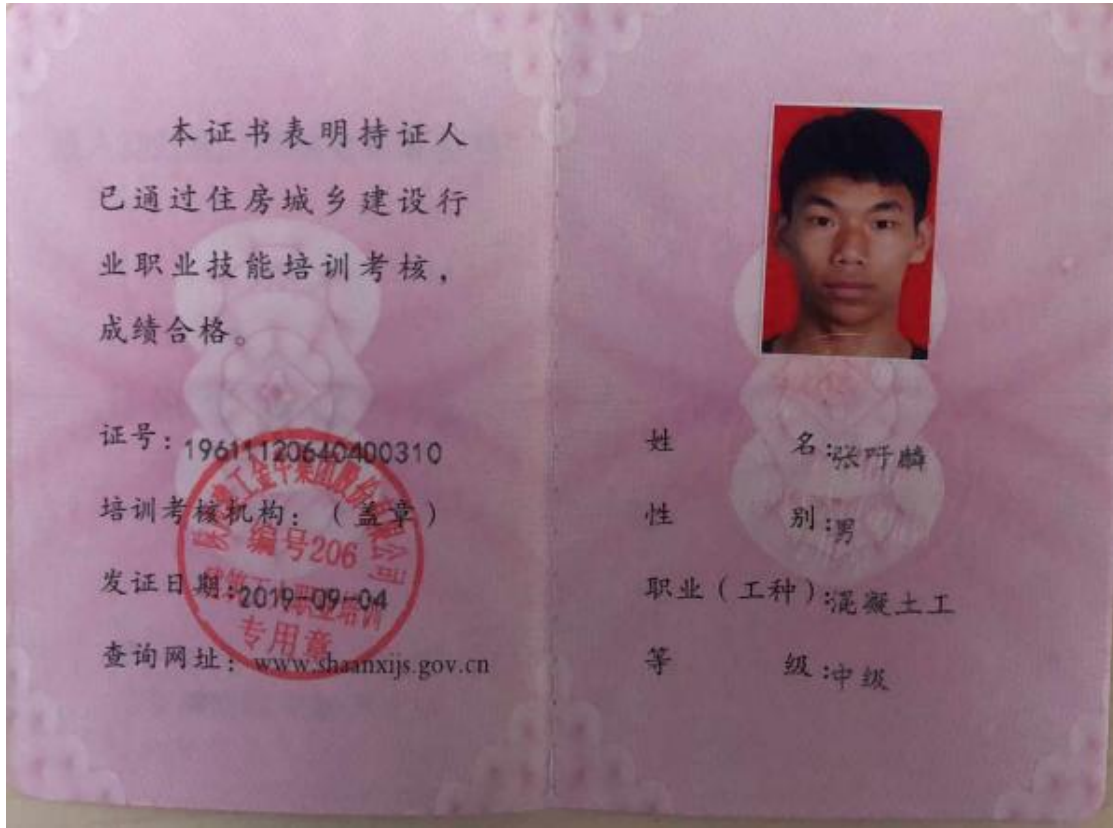 本证书表明持证人
已通过住房城乡建设行
业职业技能培训考核，
成绩合格。
证号：19611120640400310
培训考核机构：（盖章）
发证日期：2019-09-04
查询网址：www.shaanxijs.gov.cn
工金牛集团股份有限公司
编号206
建筑工人职业培训
专用章
姓名：张吁麟
性别：男
职业（工种）：混凝土工
等级：中级